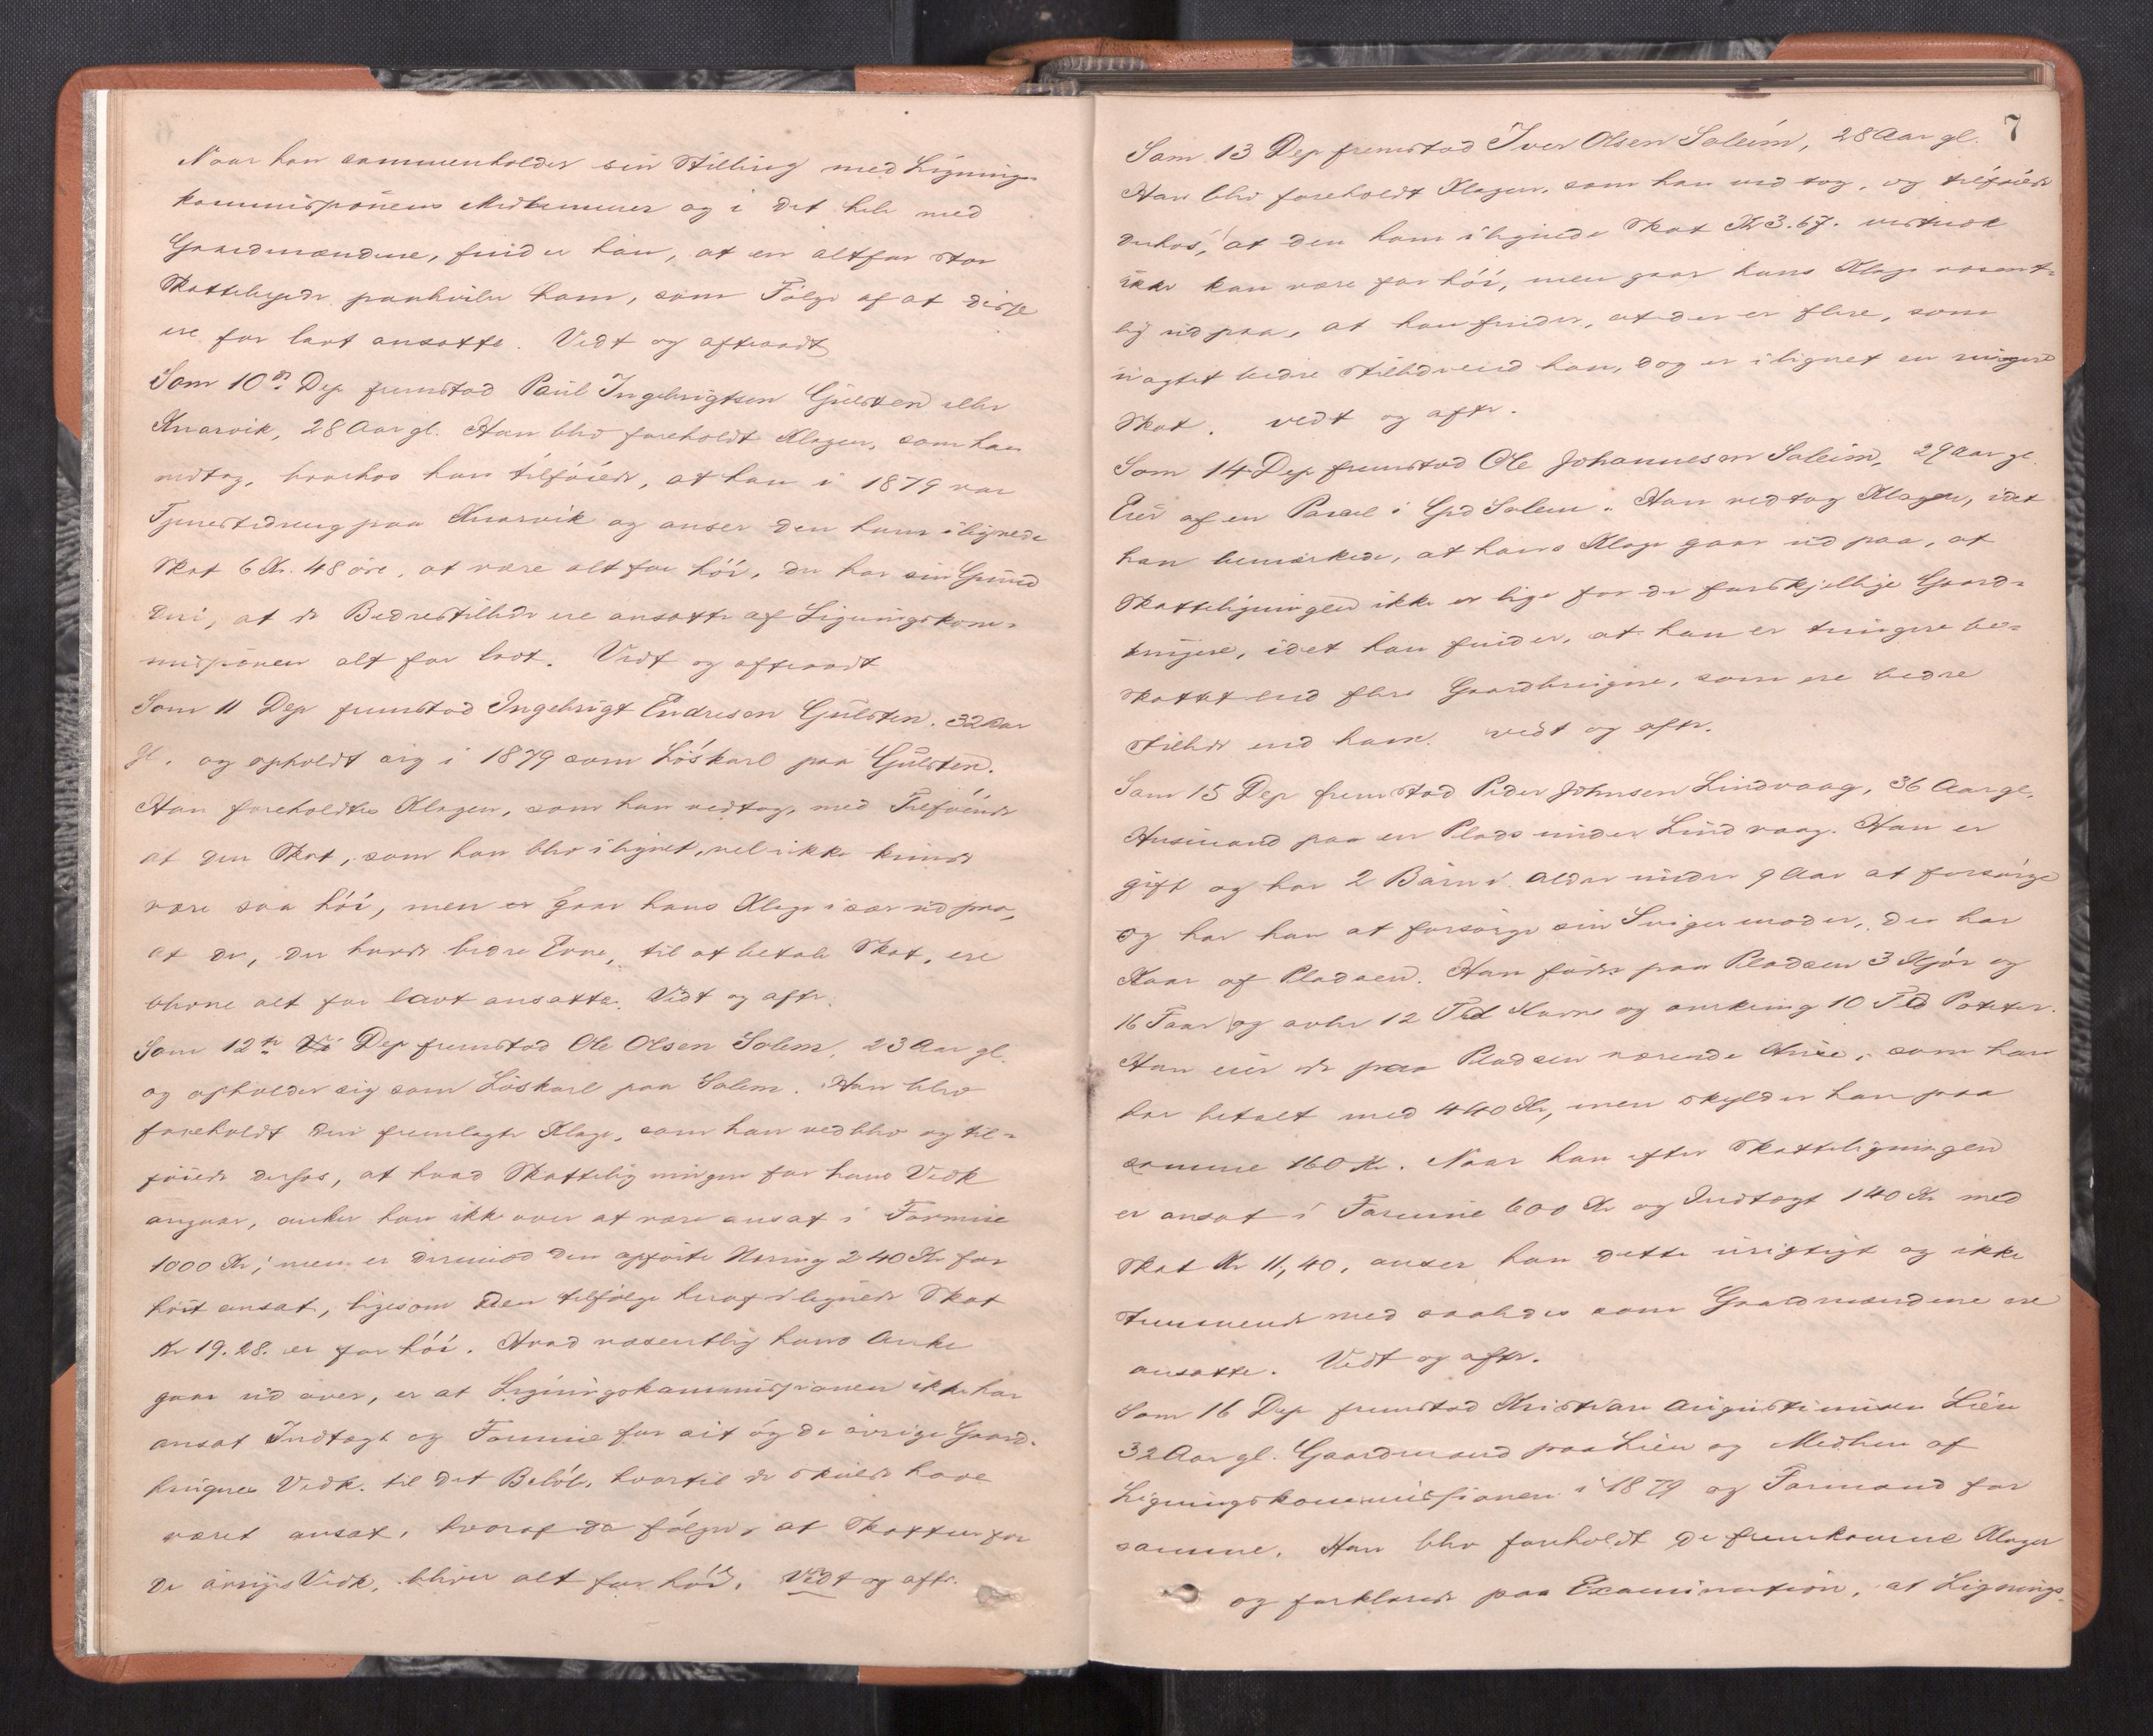 Naar han sammenholder sin Stilling med Lignings-
kommissionens Medlemmer og i det hele med
Gaardmændene, finder han, at en altfor stor
Skattebyrde paahviler ham, som Følge af at disse
ere for lavt ansatte. Vedt og aftraadt
Som 10de Dep fremstod Paul Ingebrigtsen Gulsten eller
Knarvik, 28 Aar gl. Han blev foreholdt Klagen, som han
vedtog, hvorhos han tilføiede, at han i 1879 var
Tjenestedreng paa Knarvik og anser den ham ilignede
Skat 6 Kr. 48 øre, at være alt for høi, der har sin Grund
deri, at de Bedrestillede ere ansatte af Ligningskom-
missionen alt for lavt. Vedt og aftraadt
Som 11 Dep fremstod Ingebrigt Endresen Gulsten, 32 Aar
gl. og opholdt sig i 1879 som Løskarl paa Gulsten.
Han foreholdtes Klagen, som han vedtog, med Tilføiende
at den Skat, som han blev ilignet, vel ikke kunde
være saa høi, men er gaar hans Klage især ud paa,
at de, der havde bedre Evne, til at betale Skat, ere
blevne alt for lavt ansatte. Vedt og aftr.
Som 12te Vi Dep fremstod Ole Olsen Solem, 23 Aar gl.
og opholder sig som Løskarl paa Solem. Han blev
foreholdt den fremlagte Klage, som han vedblev og til-
føiede derhos, at hvad Skatteligningen for hans Vedk
angaar, anker han ikke over at være ansat i Formue
1000 Kr, men er derimod den opførte Næring 240 Kr for
høit ansat, ligesom den tilfølge heraf ilignede Skat
Kr 19.28. er for høi. Hvad væsentlig hans Anke
gaar ud over, er at Ligningskommissionen ikke har
ansat Indtægt og Formue for sit og de øvrige Gaard-
brugeres Vedk. til det Beløb, hvortil de skulde have
været ansat, hvoraf da følger, at Skatten for
de øvriges Vedk, bliver alt for høi. Vedt og aftr.
7
Som 13 Dep fremstod Iver Olsen Soleim, 28 Aar gl.
Han blev foreholdt Klagen, som han vedtog, og tilføiede
derhos, at den ham ilignede Skat Kr 3.67. vistnok
ikke kan være for høi, men gaar hans Klage væsent-
lig ud paa, at han finder, at der er flere, som
uagtet bedre stillede end han, dog er ilignet en ringere
Skat. vedt og aftr.
Som 14 Dep fremstod Ole Johannesen Soleim, 29 Aar gl.
Eier af en Parcel i Grd Solem. Han vedtog Klagen, idet
han bemærkede, at hans Klage gaar ud paa, at
Skatteligningen ikke er lige for de forskjellige Gaard-
brugere, idet han finder, at han er tungere be-
skattet end flere Gaardbrugere, som ere bedre
stillede end ham. vedt og aftr.
Som 15 Dep fremstod Peder Johnsen Lindvaag, 36 Aar gl,
Husmand paa en Plads under Lindvaag. Han er
gift og har 2 Børn i Alder under 9 Aar at forsørge
og har han at forsørge sin Svigermoder, der har
Kaar af Pladsen. Han føder paa Pladsen 3 Kjør og
16 Faar og avler 12 Td Korn og omkring 10 Td Poteter.
Han eier de paa Pladsen værende Huse, som han
har betalt med 440 Kr, men skylder han paa
samme 160 Kr. Naar han efter Skatteligningen
er ansat i Formue 600 Kr og Indtægt 140 Kr med
Skat Kr 11,40, anser han dette urigtigt og ikke
stemmende med saaledes som Gaardmændene ere
ansatte. Vedt og aftr.
Som 16 Dep fremstod Kristian Augustinusen Lien
32 Aar gl. Gaardmand paa Lien og Medlem af
Ligningskommissionen i 1879 og Formand for
samme. Han blev foreholdt de fremkomne Klager
og forklarede paa Examination, at Lignings-